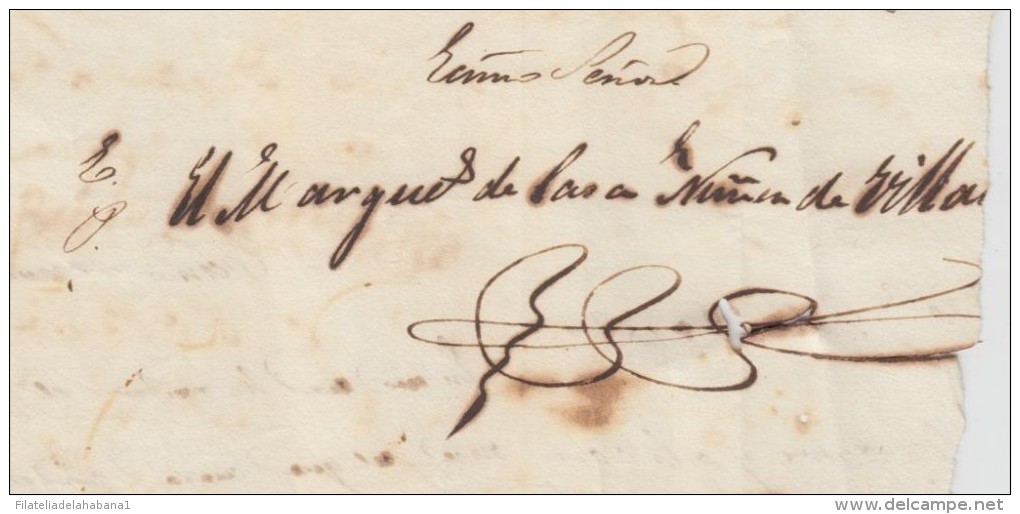 Exmo Señor
E. P.
El Marques de Casa Nuñez de Villa
Filateliadelahabana1
www.delcampe.net